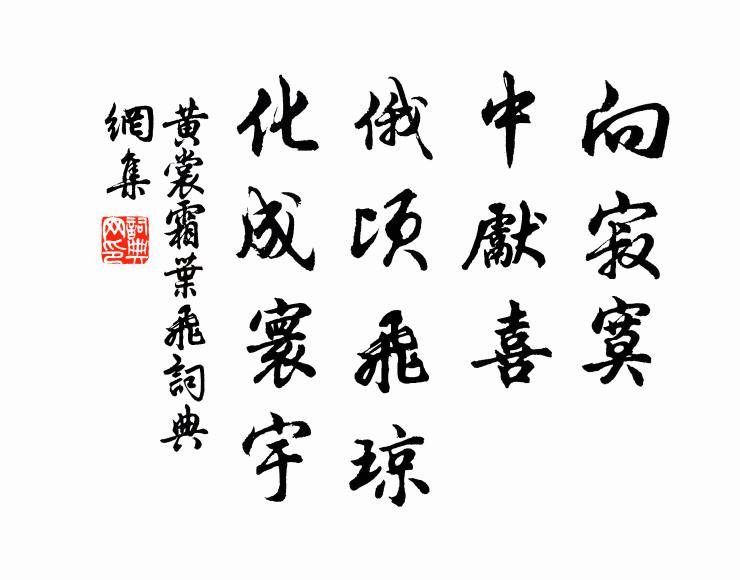 向寂寞
中獻喜
俄頃飛琼
化成寰宇
黄裳霜葉飛詞典
網集
詞典
网印